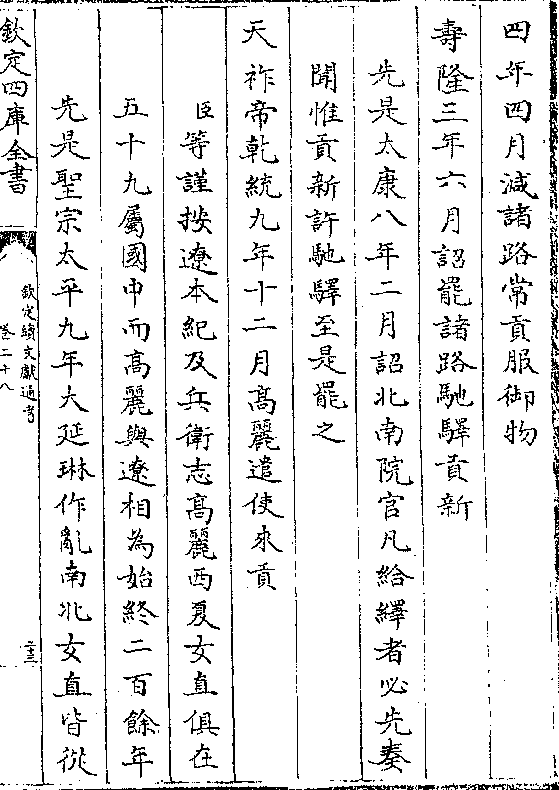 四年四月減諸路常貢服御物
壽隆三年六月詔罷諸路馳驛貢新
先是太康八年二月詔北南院官凡給繹者必先奏
聞惟貢新許馳驛至是罷之
天祚帝乾統九年十二月髙麗遣使來貢
臣等謹按遼本紀及兵衛志髙麗西夏女直俱在
五十九屬國中而髙麗與遼相為始終二百餘年
先是聖宗太平九年大延琳作亂南北女直皆從
欽定四庫全書
欽定續文獻通考
卷二十八
二十三